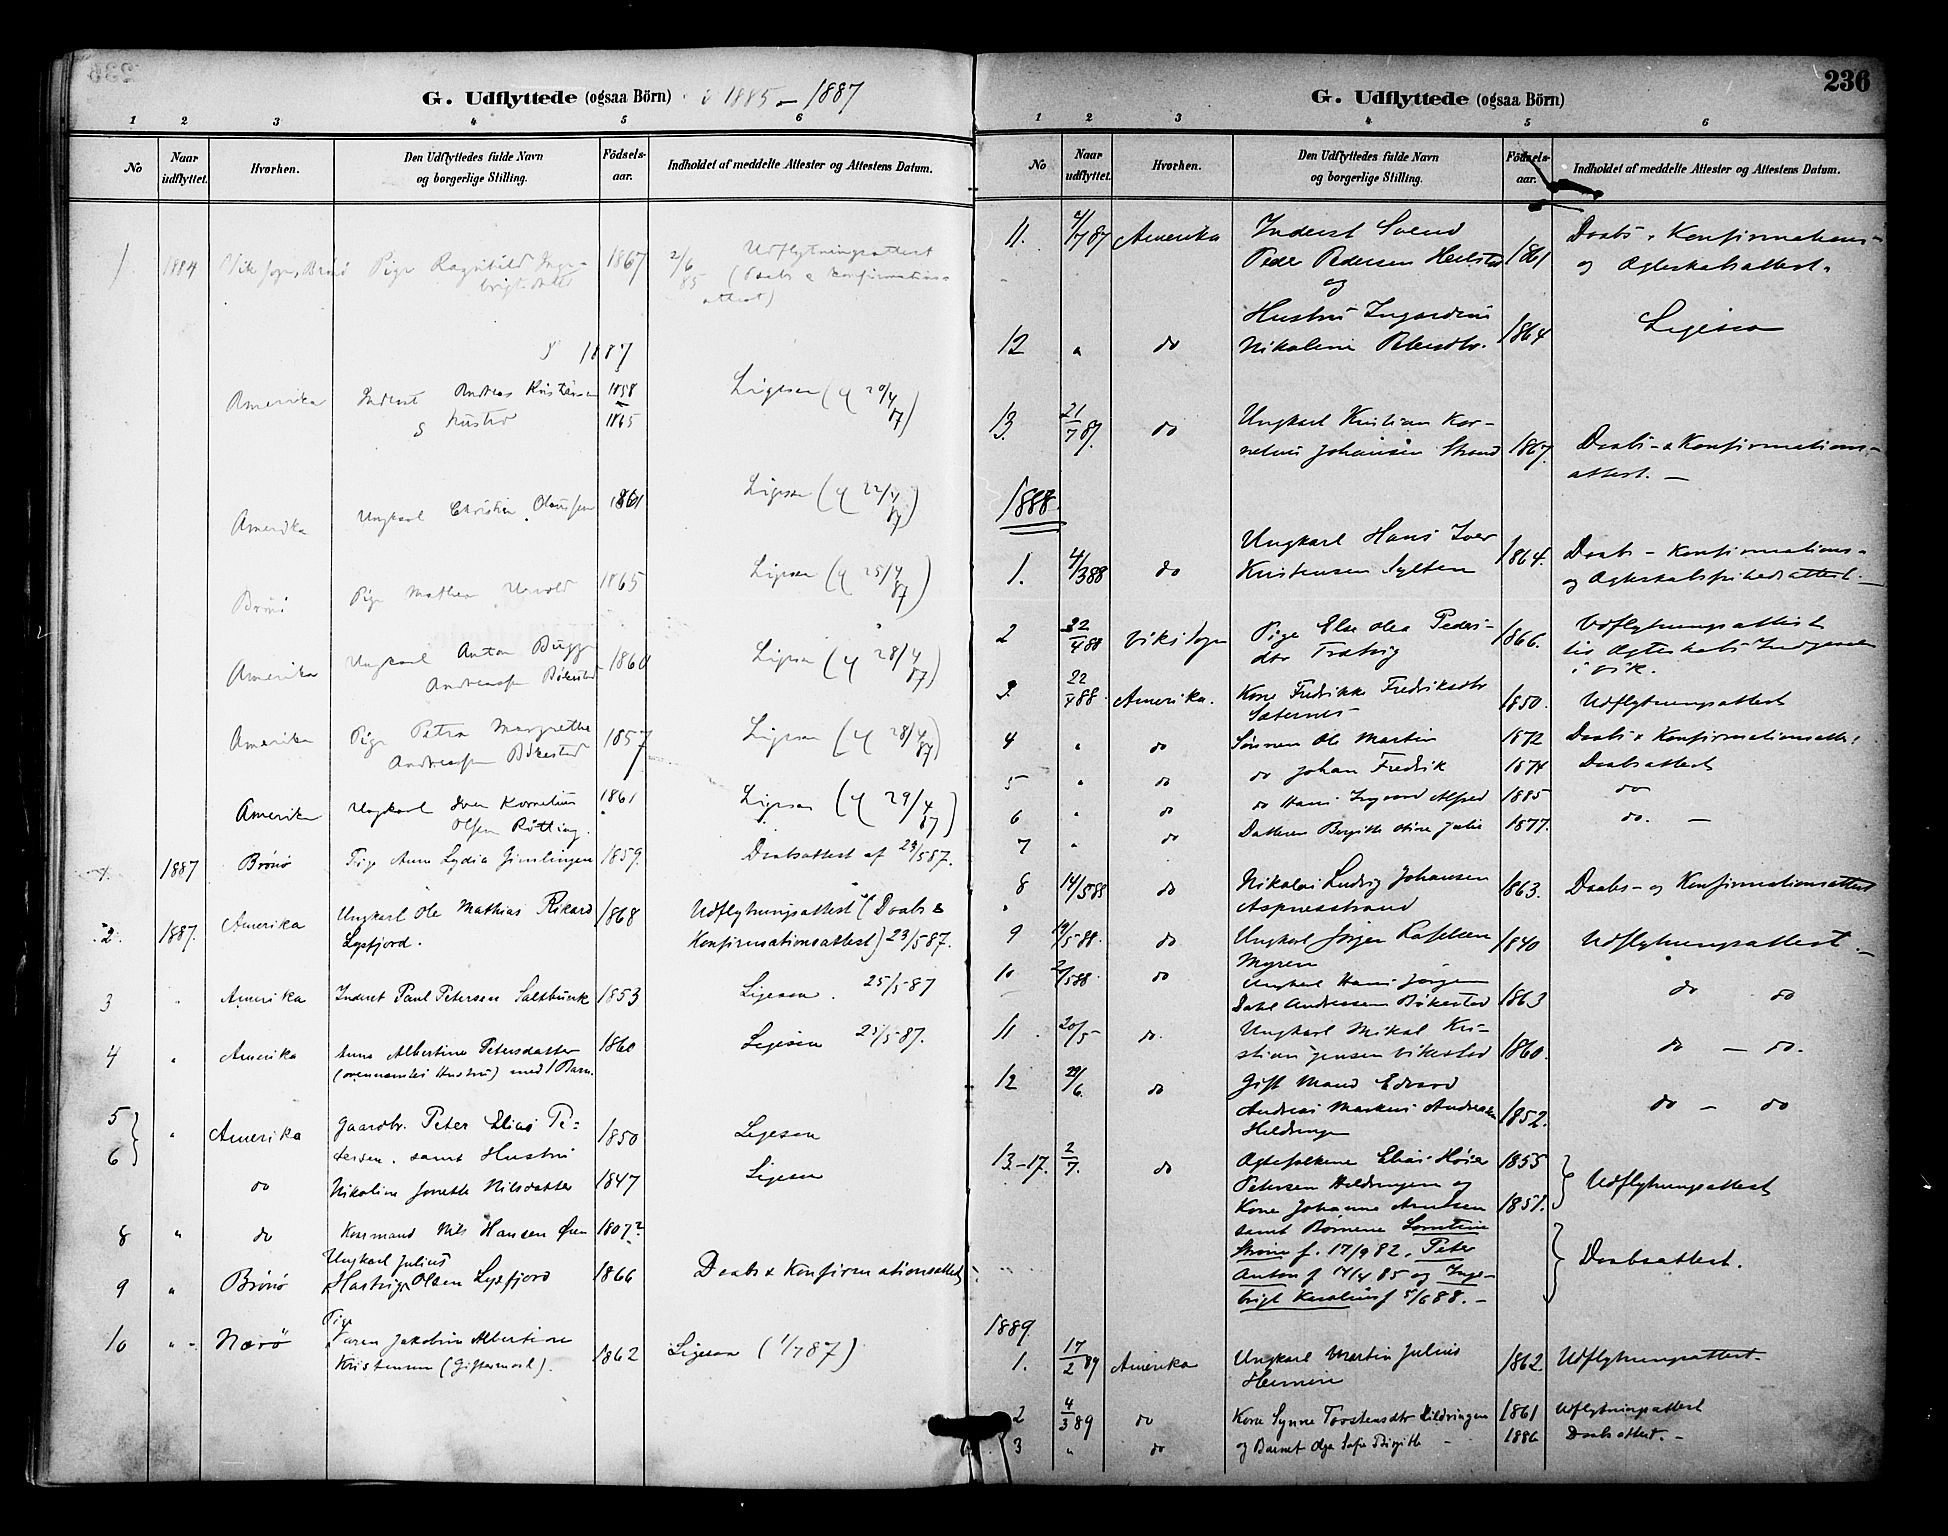 G. Udflyttede (ogsaa Börn) 1885 - 1887
1 2 3 4 5 6
No
Naar udflyttet.
Hvorhen.
Den Udflyttedes fulde Navn
og borgerlige Stilling.
Födsels-
aar.
Indholdet af meddelte Attester og Attestens Datum.
1 1884 Pige Ragnhild Inge- 1867 2/6 85 Udflytningsattest
brigtsdatter (Daabs & Konfirmations-
attest)
1887
Amerika Inderst Andreas Kristensen 1858 Ligesaa (20/4 87)
Hustru 1865
Amerika Ungkarl Christian Olaussen 1861 Ligesaa (22/4 87)
Brønø Pige Mathea 1865 Ligesaa (25/4 87)
Amerika Ungkarl Anton Bugge 1860 Ligesaa (28/4 87)
Andreassen Bøkestad
Amerika Pige Petra Margrethe 1857 Ligesaa (28/4 87)
Andreassen Bøkestad
Amerika Ungkarl Iver Kornelius 1861 Ligesaa (29/4 87)
Olsen Røtting.
1. 1887 Brønø Pige Anne Lydia Gimlingen 1859. Daabsattest af 23/5 87.
2. 1887. Amerika Ungkarl Ole Mathias Rikard 1868 Udflytningsattest (Daabs &
Lysfjord. Konfirmationsattest) 23/5 87.
3 " Amerika Inderst Paul Petersen 1853 Ligesaa. 25/5 87
4 " Amerika Anna Albertine Petersdatter 1860 Ligesaa 25/5 87.
(ovennævntes Hustru) med 1 Barn.
5 " Amerika Gaardbr. Peter Elias Pe- 1850 Ligesaa
6 tersen. samt Hustru
do Nikoline Jonette Nilsdatter 1847 Ligesaa
8 " do Nils Hansen Øren 1807?
9 " Brønø Ungkarl Julius
Hartvig Olsen Lysfjord 1866 Daabs & Konfirmationsattest
10 " Nærø Pige
Karen Jakobine Albertine 1862 Ligesaa (1/7 87)
Kristensen (Giftermaal).
236
G. Udflyttede (ogsaa Börn)
1 2 3 4 5 6
No
Naar udflyttet.
Hvorhen.
Den Udflyttedes fulde Navn
og borgerlige Stilling.
Födsels-
aar.
Indholdet af meddelte Attester og Attestens Datum.
11. 4/7 87 Amerika Inderst Svend Daabs & Konfirmations-
Peder Pedersen 1861 og Ægteskabsattest.
og
Hustru Ingardine 1864 Ligesaa
12 " do Nikoline
13. 21/7 87. do Ungkarl Kristian Kor-
nelius Johansen Strand 1867. Daabs- & Konfirmations-
attest. -
1888.
Ungkarl Hans Iver 1864. Daabs- Konfirmations-
1. 4/3 88 do Kristensen Sylten og Ægteskabsfrihedsattest. -
2 22/4 88 Viks Sogn Pige Else Olea Peders- 1866. Udflytningsattest
dtr til Ægteskabs Indgaaelse
i Vik.
3. 22/4 88. Amerika. Kone Fredrikke Fredriksdtr 1850. Udflytningsattest
Sæternes
4 " do Sønnen Ole Martin 1872 Daabs & Konfirmationsattest
5 " do do Johan Fredrik 1874 Daabsattest
6 " do do Hans Ingvard Alfred 1885 do
7 " do Datteren Birgitte Oline Julie 1877. do. -
8 14/5 88 do Nikolai Ludvig Johansen 1863. Daabs- og Konfirmationsattest
Aspnesstrand
9 19/5 88. do Ungkarl Jørgen Rafelsen 1840 Udflytningsattest. -
Myren
10 20/5 88. do Ungkarl Hans Jørgen do do
Dahl Andreassen Bøkestad 1863
11 20/5 do. Ungkarl Mikal Kri-
stian Jensen Vikestad 1860. do - do.
12 29/6. do Gift Mand Edvard
Andreas Markus Andreassen 1852. do - do
Hildringen
13.-17. 2/7. do Ægtefolkene Elias Høier 1855 Udflytningsattest
Petersen Hildringen og
Kone Johanna Arntsen 1851.
samt Børnene
f. 17/9 82, Peter Daabsattest.
Anton f 14/4 85 og Inge-
brigt f 5/6 88. -
1889.
1. 17/2 89 Amerika Ungkarl Martin Julius 1862. Udflytningsattest
2 4/3 89 do Kone Synne Torstensdtr Hildringen 1861 Udflytningsattest
3 " do og Barnet Olga Sofie Birgitte - 1886 Daabsattest. -